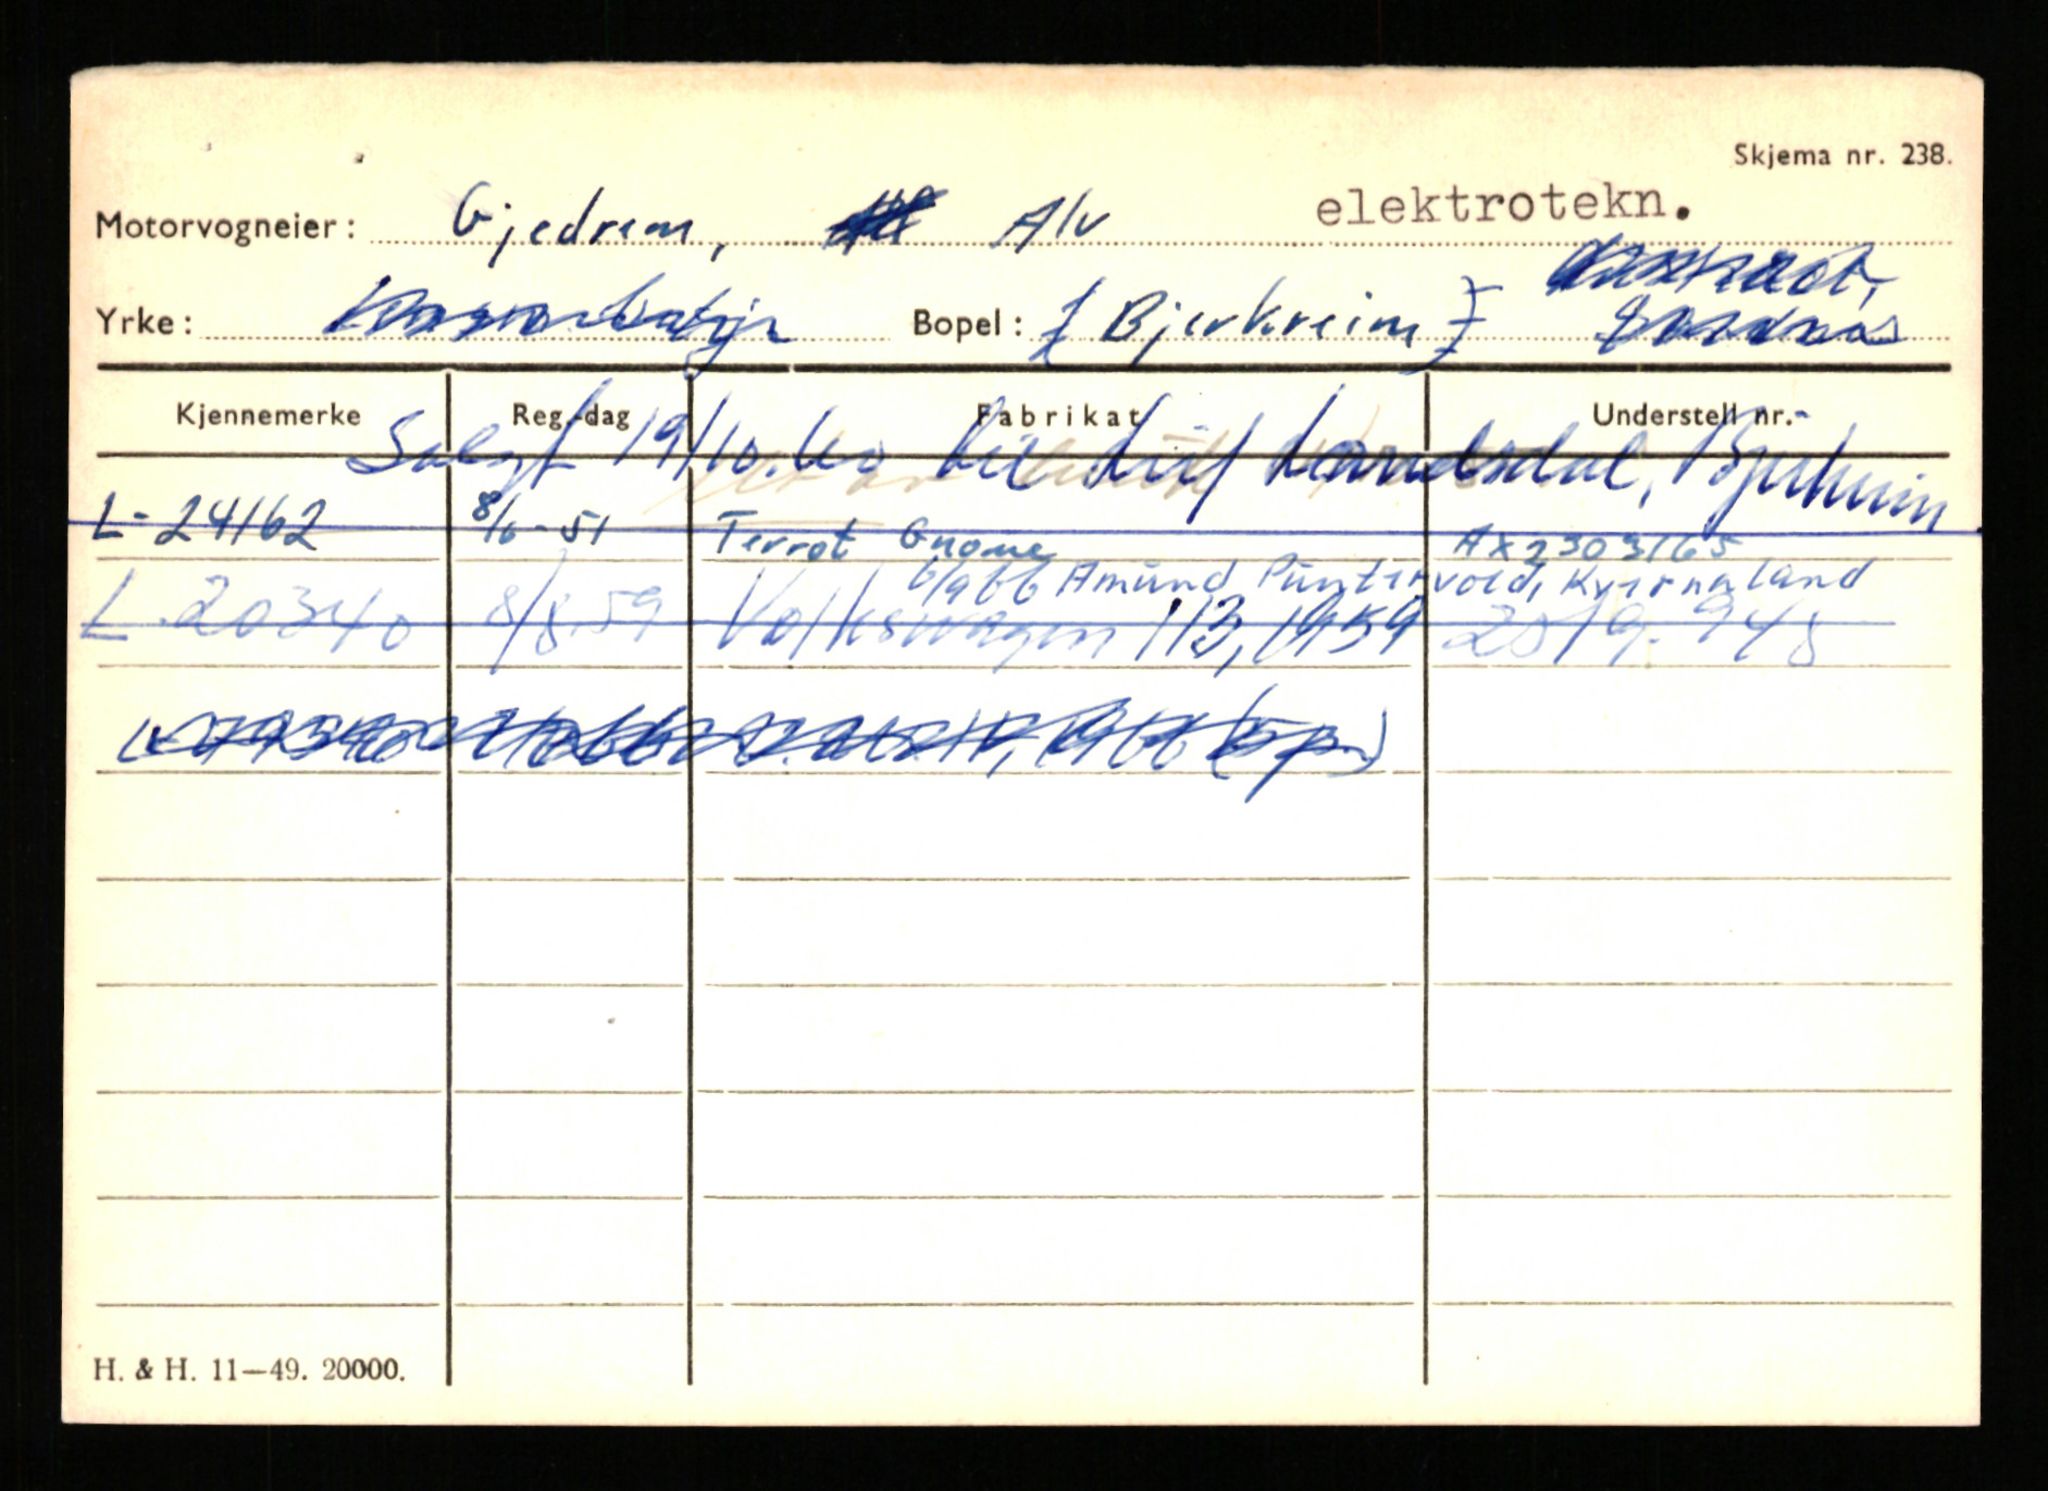 Skjema nr. 238.
Motorvogneier: Gjedrem, Alv elektrotekn.
Yrke: Bopel: (Bjerkreim)
Kjennemerke Reg.-dag Fabrikat Understell nr.
Solgt 19/10.60 til Leif Landsdal, Bjerkreim.
L-24162 8/6-51 Terrot Gnome AX2303165
6/966 Amund Puntervold, Kvernaland
L-20340 8/8.59 Volkswagen 113, 1959 2519.948
H. & H. 11—49. 20000.